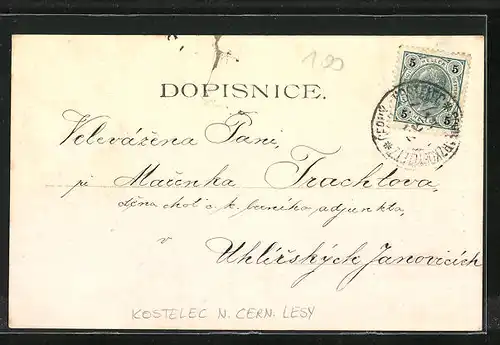 1.90
5 5
5 5
DOPISNICE.
Velevážena Paní,
pí Mačenka Trachtova,
choť c. k. adjunkta,
v
Uhlířských Janovicích
KOSTELEC N. CERN. LESY